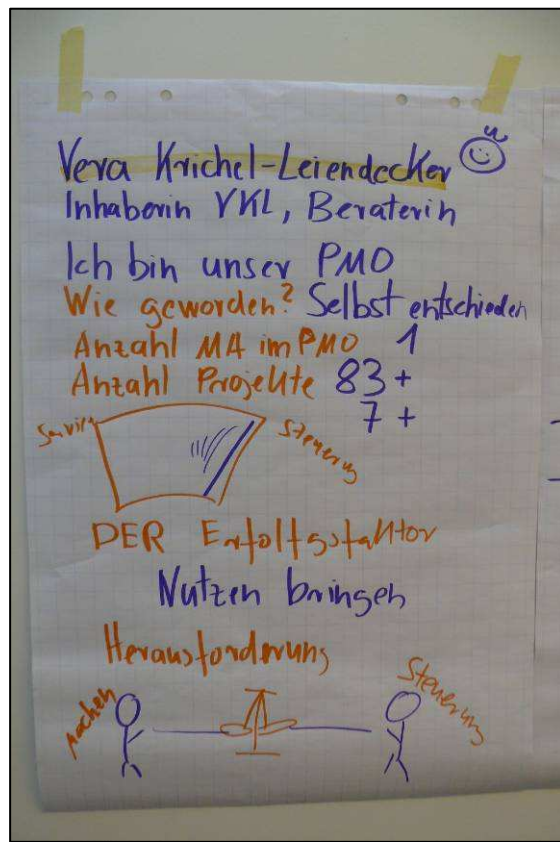 Vera Krichel-Leiendecker
Inhaberin VKL, Beraterin
Ich bin unser PMO
Wie geworden? Selbst entschieden
Anzahl MA im PMO 1
Anzahl Projekte 83 +
7 +
Service Steuerung
DER Erfolgsfaktor
Nutzen bringen
Herausforderung
Machen Steuerung